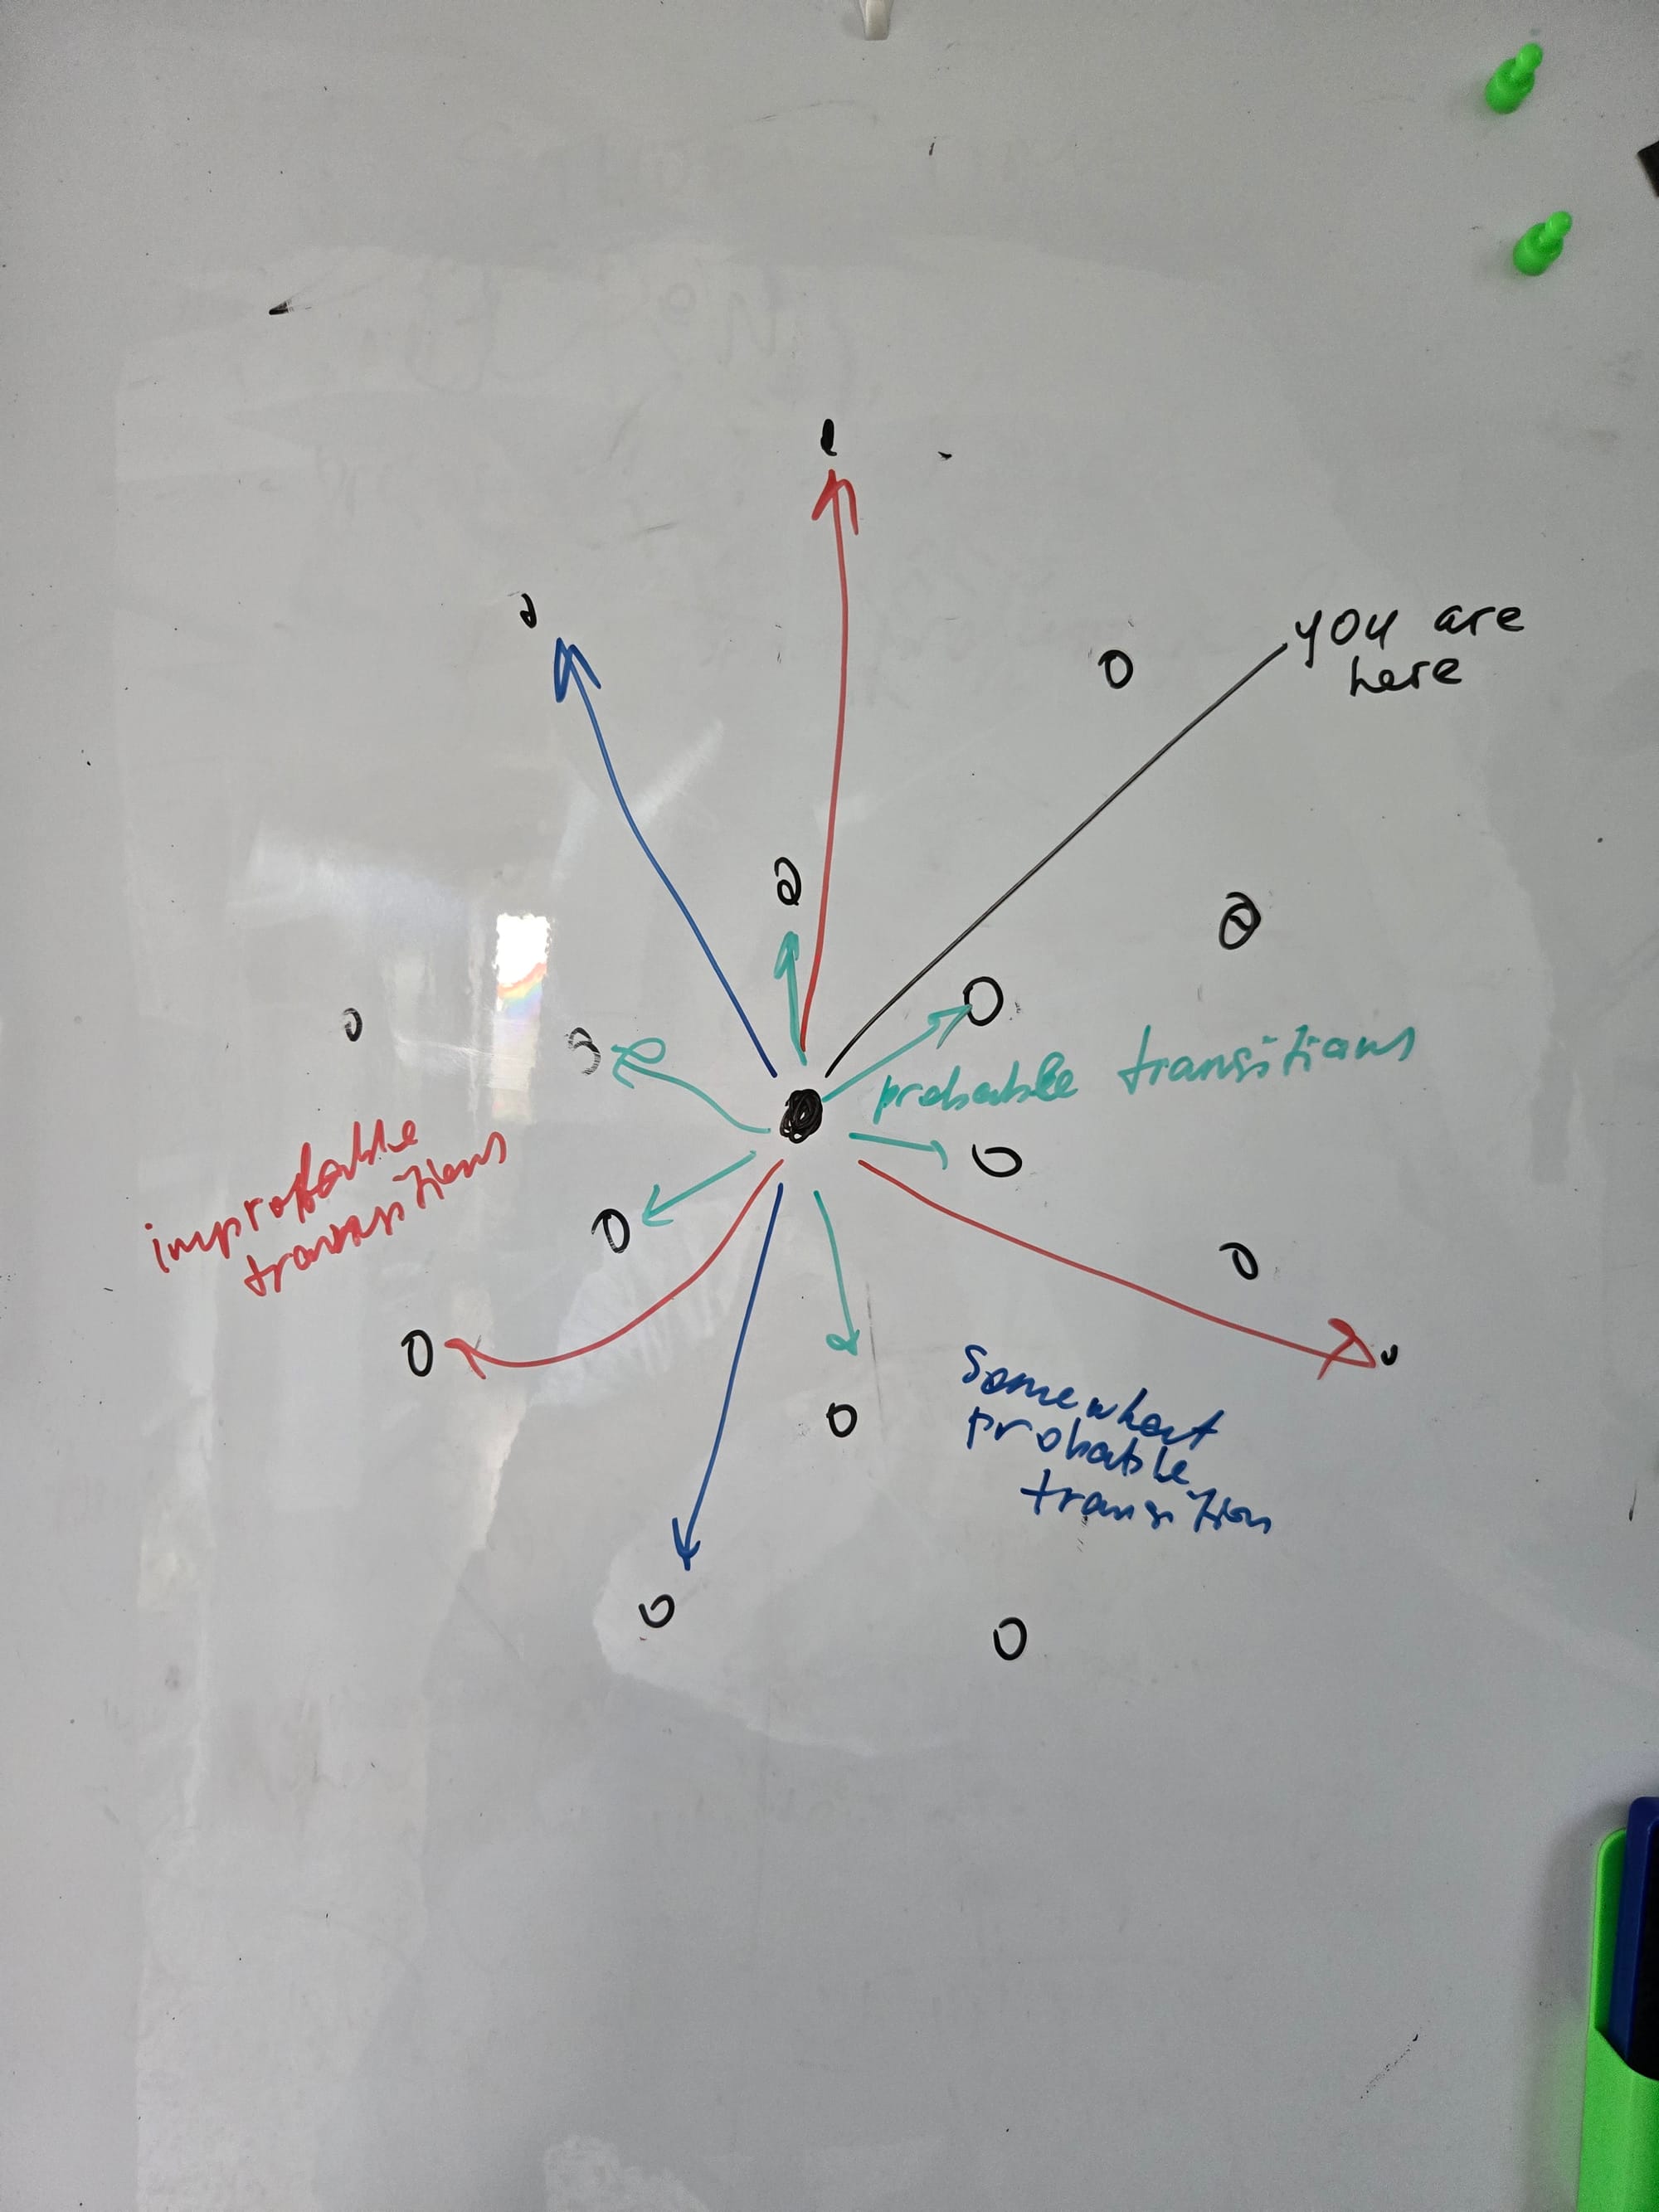 you are
here
probable transitions
improbable
transitions
somewhat
probable
transition